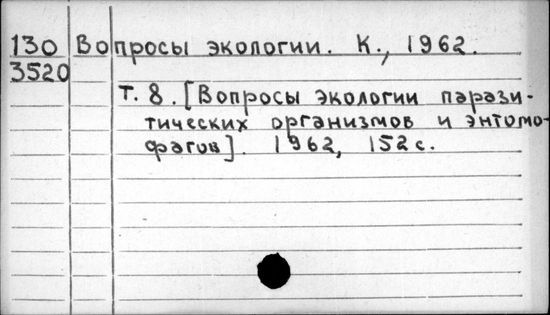 130 Вопросы экологии. К., 1962.
3520
т. 8. [Вопросы экологии парази-
тических организмов и энтомо-
фагов]. 1962, 152 с.